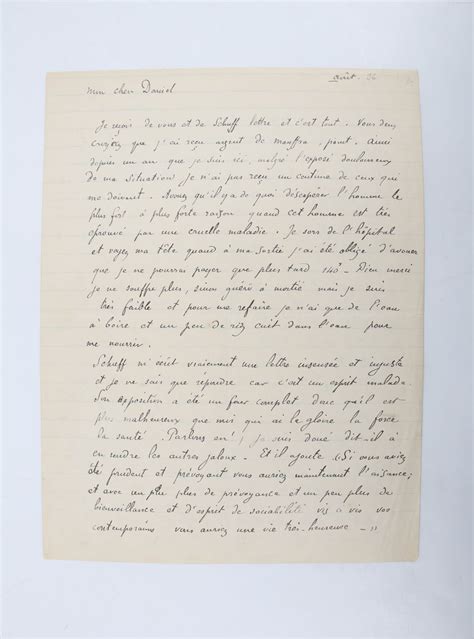 août. 96
Mon cher Daniel
Je reçois de vous et de Schuff lettre et c'est tout. Vous deux
croyez que j'ai reçu argent de Mauffra, point. Ainsi
depuis un an que je suis ici, malgré l'exposé douloureux
de ma situation je n'ai pas reçu un centime de ceux qui
me doivent. Avouez qu'il y a de quoi désespérer l'homme le
plus fort à plus forte raison quand cet homme est très
éprouvé par une cruelle maladie. Je sors de l'hôpital
et voyez ma tête quand à ma sortie j'ai été obligé d'avouer
que je ne pourrais payer que plus tard 140f - Dieu merci
je ne souffre plus, sinon guéri à moitié mais je suis
très faible et pour me refaire je n'ai que de l'eau
à boire et un peu de riz cuit dans l'eau pour
me nourrir.
Schuff m'écrit vraiment une lettre insensée et injuste
et je ne sais que répondre car c'est un esprit malade.
Son exposition a été un four complet donc qu'il est
plus malheureux que moi qui ai la gloire la force
la santé. Parlons en!, je suis doué dit-il à
en rendre les autres jaloux. - Et il ajoute "Si vous aviez
été prudent et prévoyant vous auriez maintenant l'aisance;
et avec un peu plus de prévoyance et un peu plus de
bienveillance et d'esprit de sociabilité vis à vis vos
contemporains vous auriez une vie très-heureuse -"